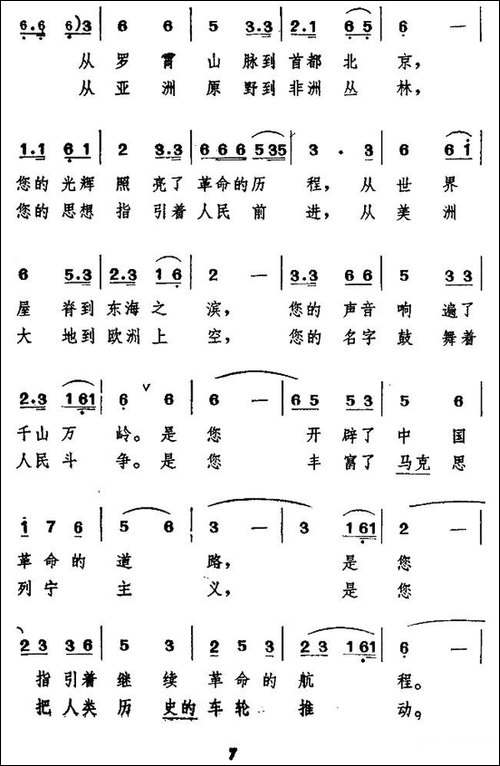 6·6 6)3 | 6 6 | 5 3·3 | 2·1 6 5 | 6 — |
从罗霄山脉到首都北京,
从亚洲原野到非洲丛林,
1·1 6 1 | 2 3·3 | 6 6 6 5 3 5 | 3 · 3 | 6 6 i |
您的光辉照亮了革命的历程,从世界
您的思想指引着人民前进,从美洲
6 5·3 | 2·3 1 6 | 2 — | 3·3 6 6 | 5 3 3 |
屋脊到东海之滨,您的声音响遍了
大地到欧洲上空,您的名字鼓舞着
2·3 1 6 1 | 6 ∨ 6 | 6 — | 6 5 5 3 | 5 6 |
千山万岭。是您开辟了中国
人民斗争。是您丰富了马克思
i 7 6 | 5 6 | 3 — | 3 1 6 1 | 2 — |
革命的道路,是您
列宁主义,是您
2 3 3 6 | 5 3 | 2 5 3 | 2 3 1 6 1 | 6 — |
指引着继续革命的航程。
把人类历史的车轮推动。
7